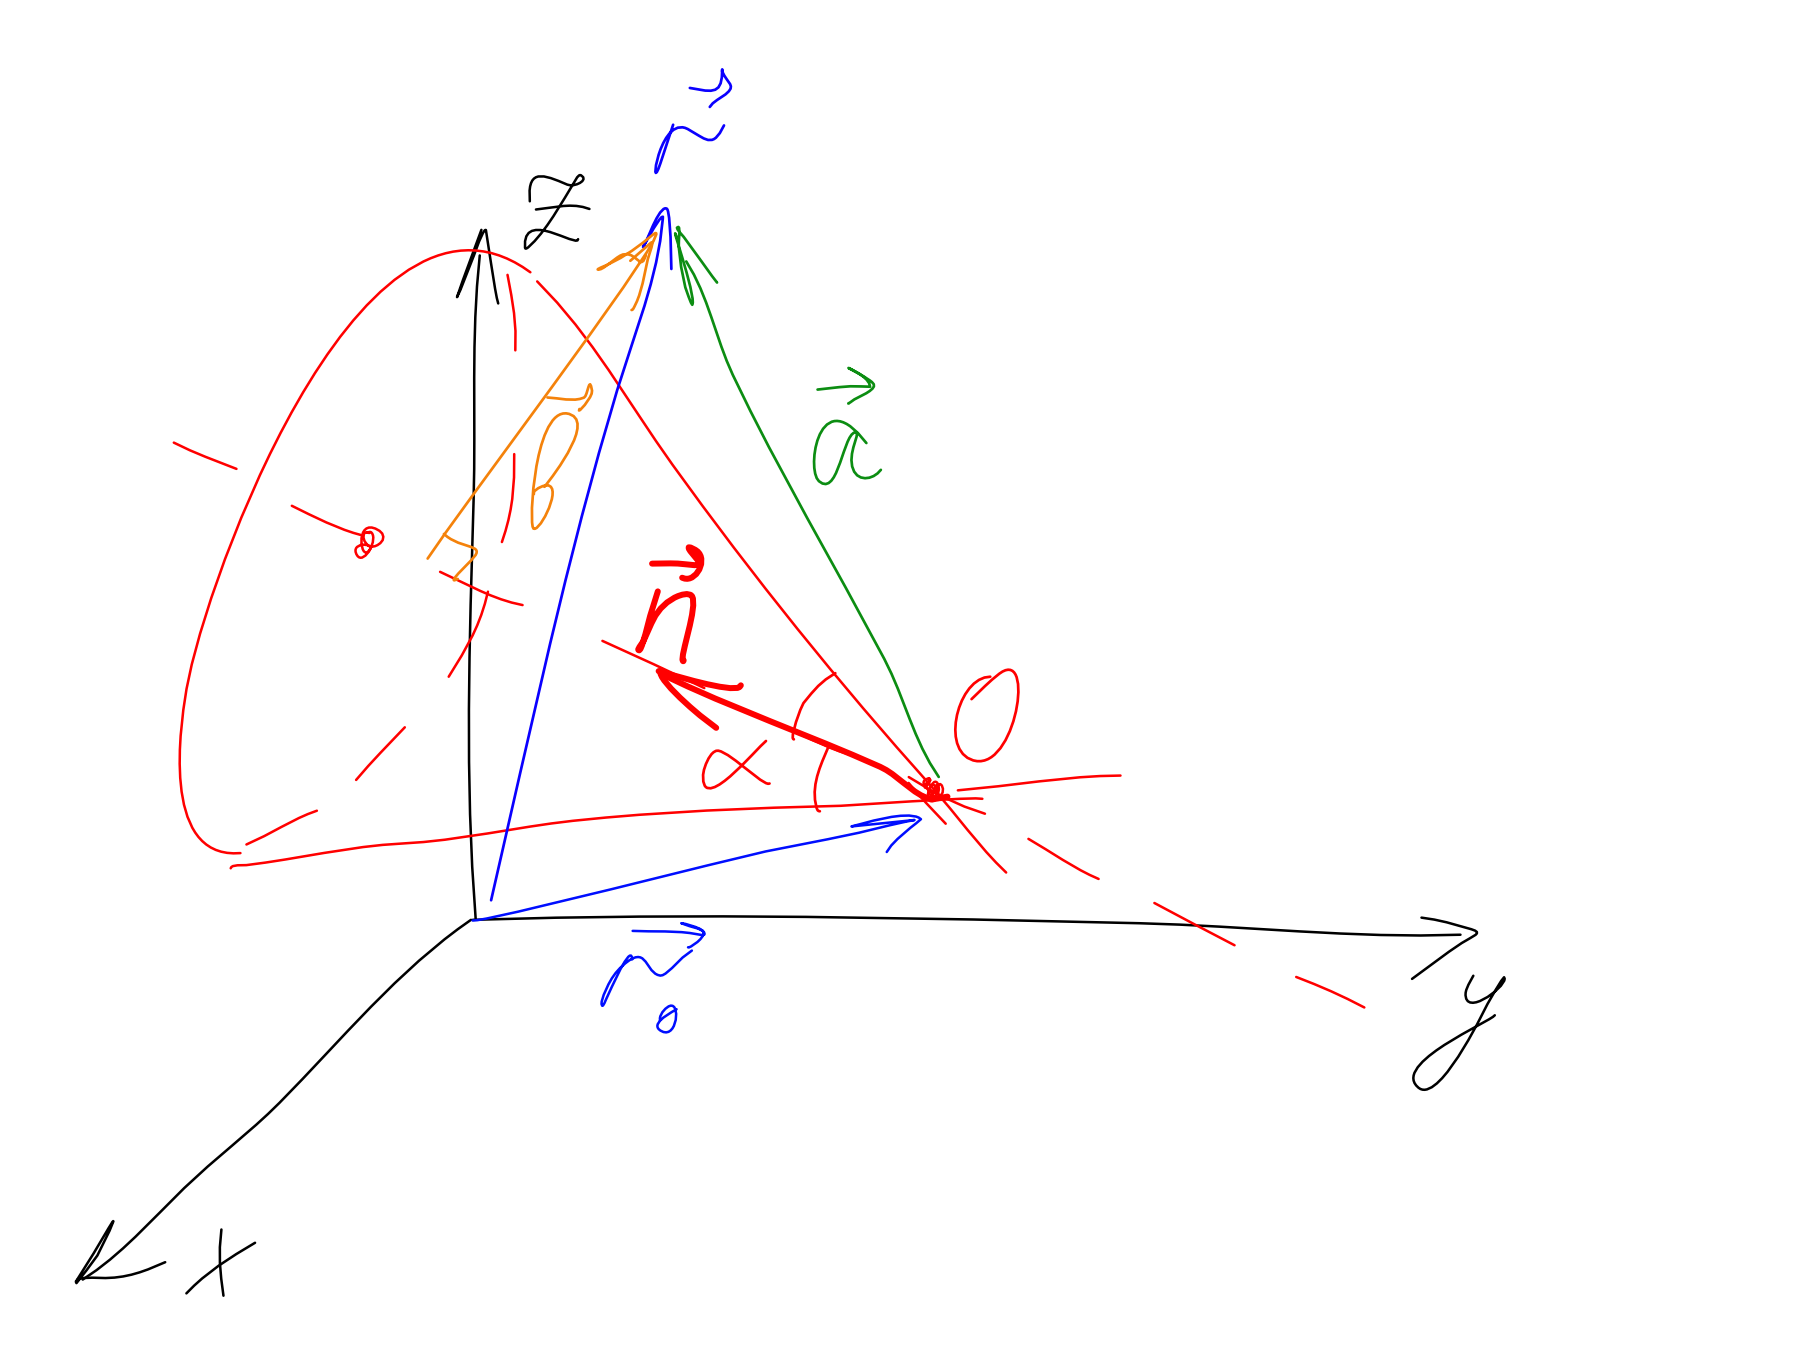 r⃗
z
a⃗
b⃗
n⃗
O
α
r⃗₀
y
x